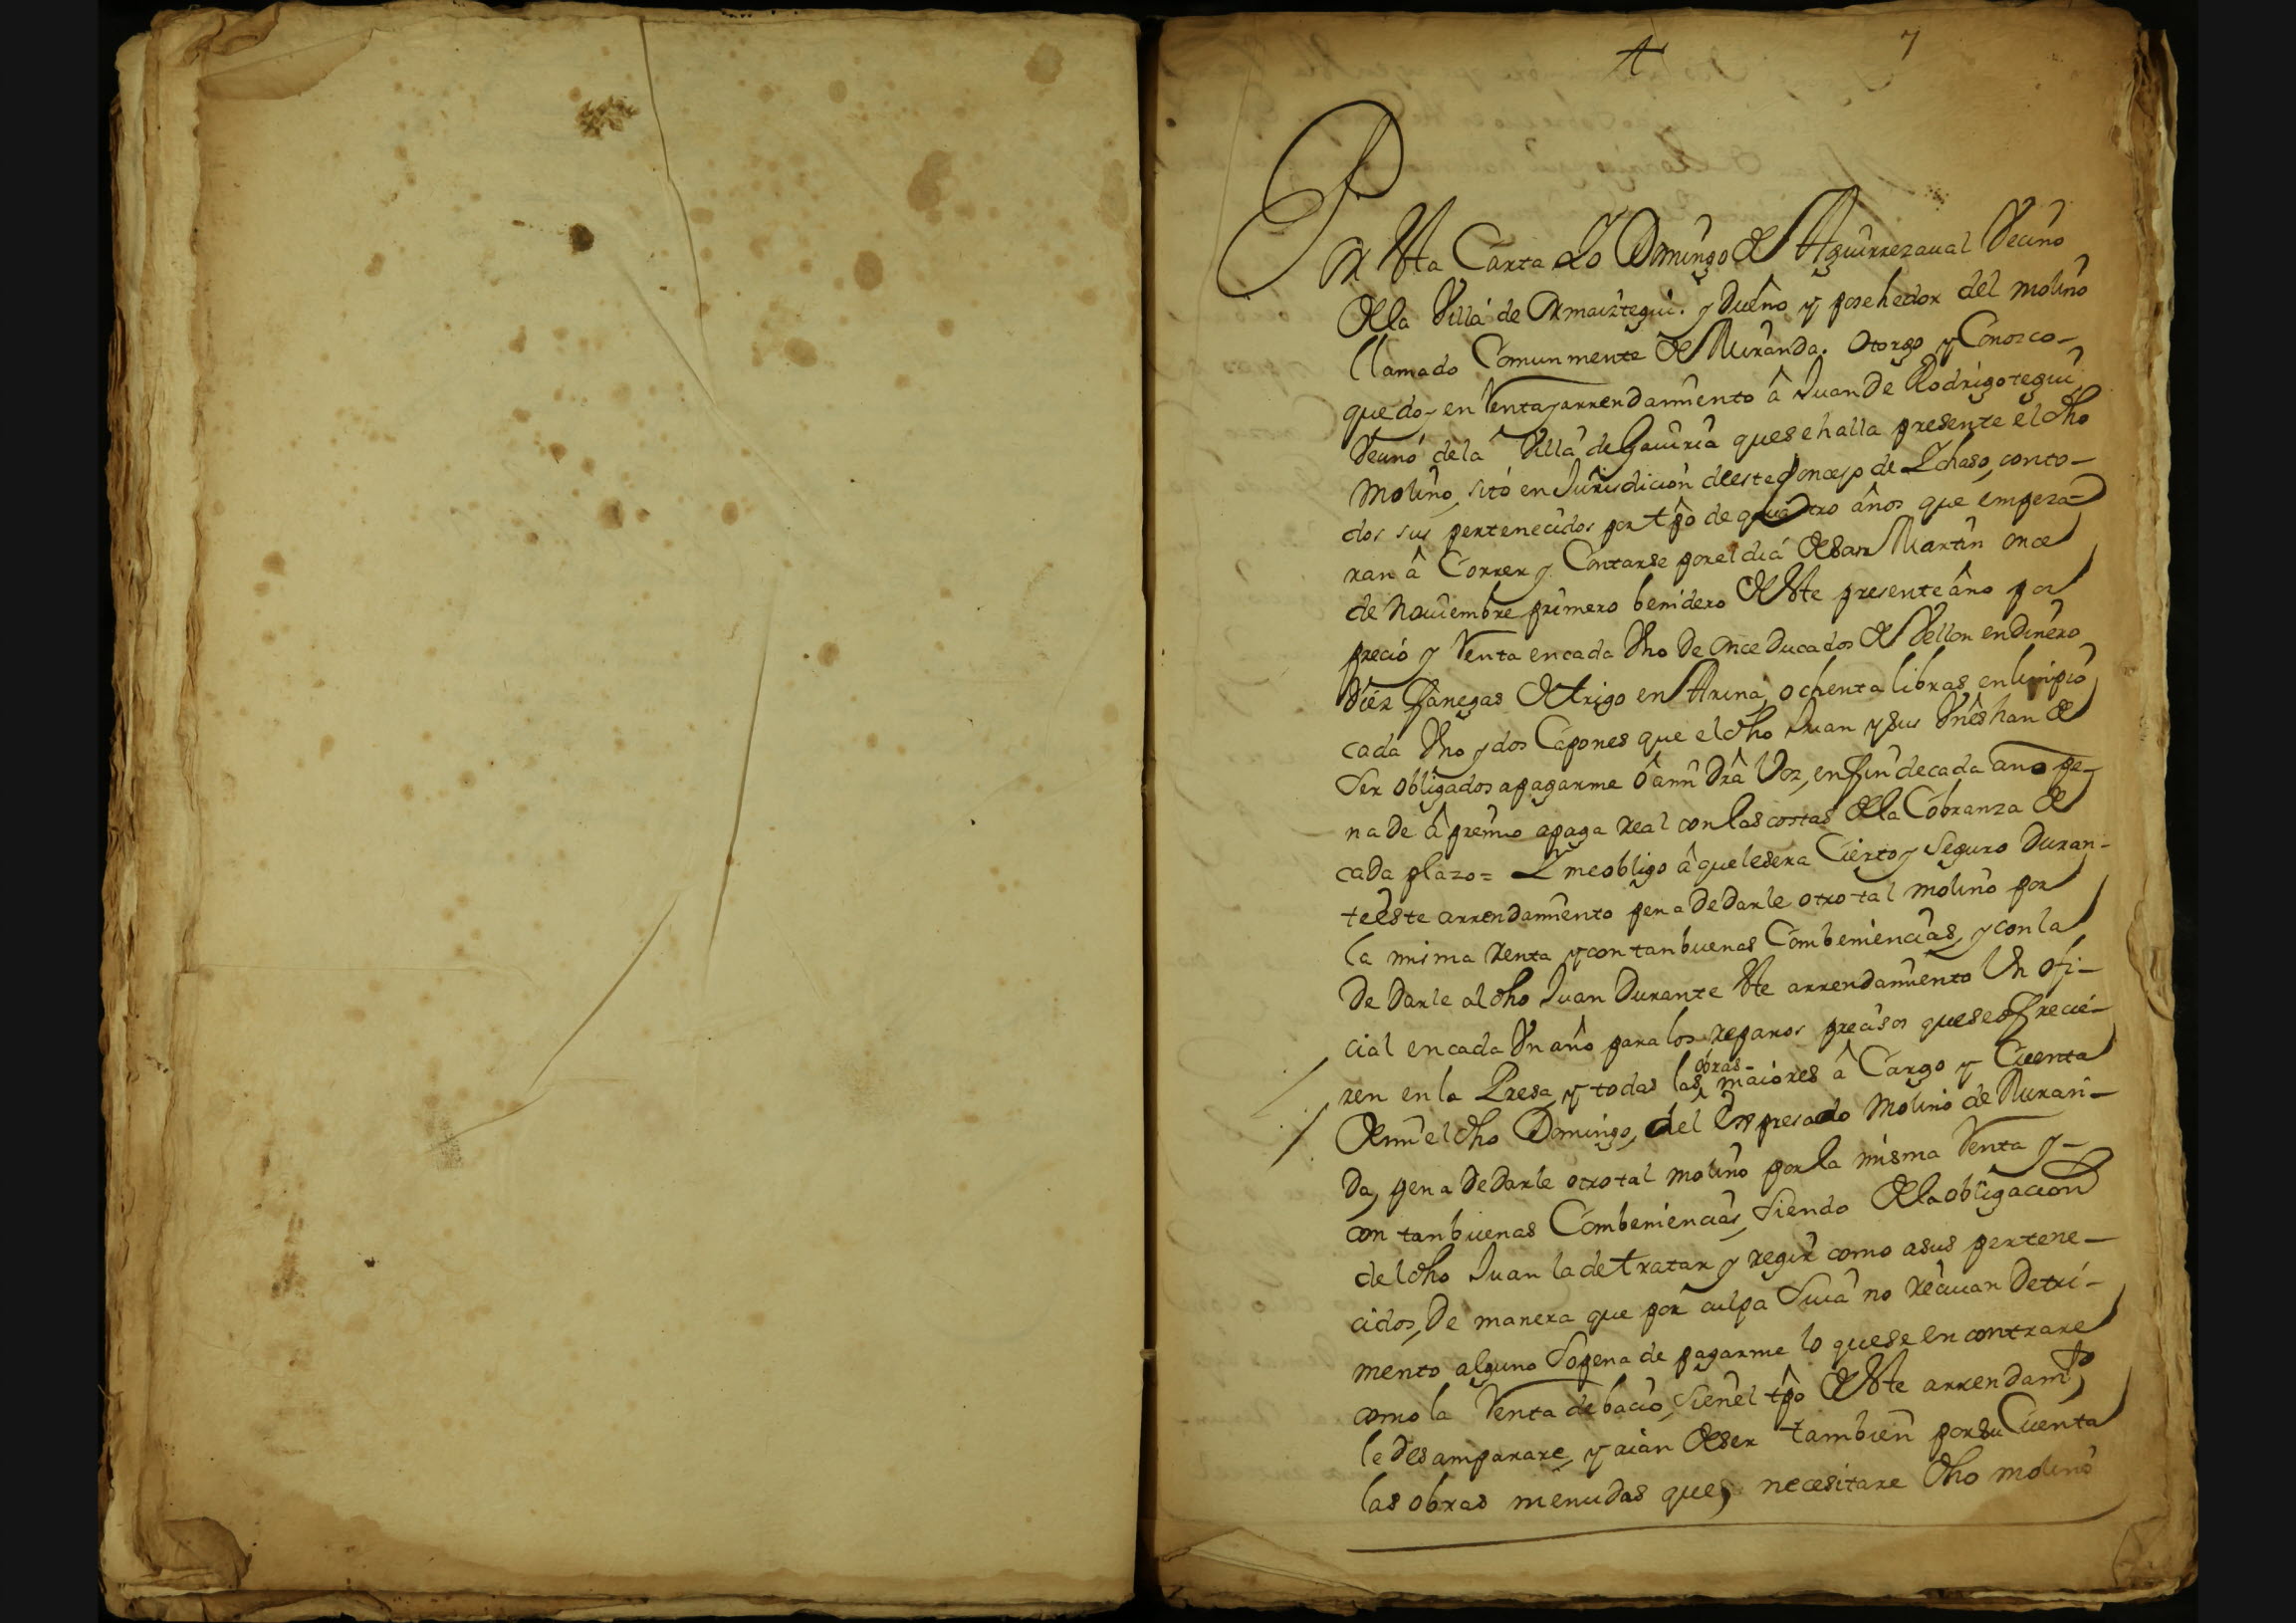 7
Por Esta Carta Yo Domingo de Aguirrezaual Vecino
de la Villa de Ormaiztegui. y Dueño y posehedor del molino
llamado Comunmente de Muranda. Otorgo y Conosco-
que doy en Renta y arrendamiento â Juan de Rodrigotegui
Vecino de la Villa de Gauiria que se halla presente el dho
Molino, sito en Jurisdicion de este Concejo de Ychaso, con to-
dos sus pertenecidos por tpo de quatro años que empeza-
ran â Correr y Contarse por el dia de San Martin once
de Nouiembre primero benidero de Este presente año por
precio y Renta en cada Vno de Once Ducados de Vellon en Dinero
Diez fanegas de trigo en Arina, ochenta libras en limpio
cada Vno y dos Capones que el dho Juan y sus Vnes han de
Ser Obligados a pagarme ô a mi Dra Voz, en fin de cada año pe-
na de âpremio a paga Real con las costas de la Cobranza de
cada plazo = Y me obligo â que le sera Cierto y Seguro Duran-
te este arrendamiento pena de Darle otro tal molino por
la misma Renta y con tan buenas Combeniencias, y con la
De Darle al dho Juan Durante Este arrendamiento Un ofi-
cial en cada Vn año para los reparos precisos que se ofrecie-
ren en la Presa, y todas las obras- maiores â Cargo y Cuenta
de mi el dho Domingo, del Expresado Molino de Muran-
da, pena de Darle otro tal molino por la misma Renta y-
con tan buenas Combeniencias, Siendo de la obligacion
del dho Juan la de tratar y regir como a sus pertene-
cidos, De manera que por culpa Suia no reciuan Detri-
mento alguno So pena de pagarme lo que se encontrare
como la Renta de bacio, Si en el tpo de Este arrendamto
le Desamparare, y aian de ser tambien por su Cuenta
las obras menudas que, necesitare dho molino